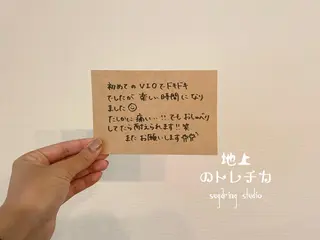 初めてのVIOでドキドキ
でしたが楽しい時間になり
ました
たしかに痛い…!!でもおしゃべり
してたら耐えられます!!笑
またお願いします
地上
のトレチカ
sugaring studio